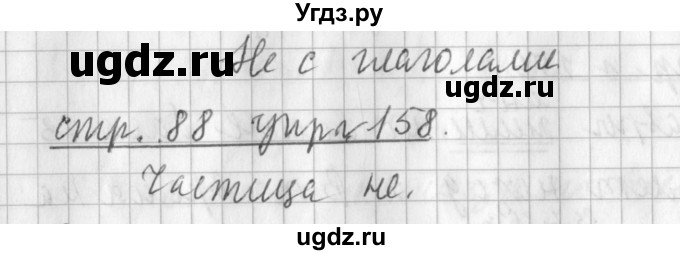 Угдз.ру
ugdz.ru Не с глаголами
ugdz.ru
стр. 88 упр. 158.
Частица не.
ugdz.ru